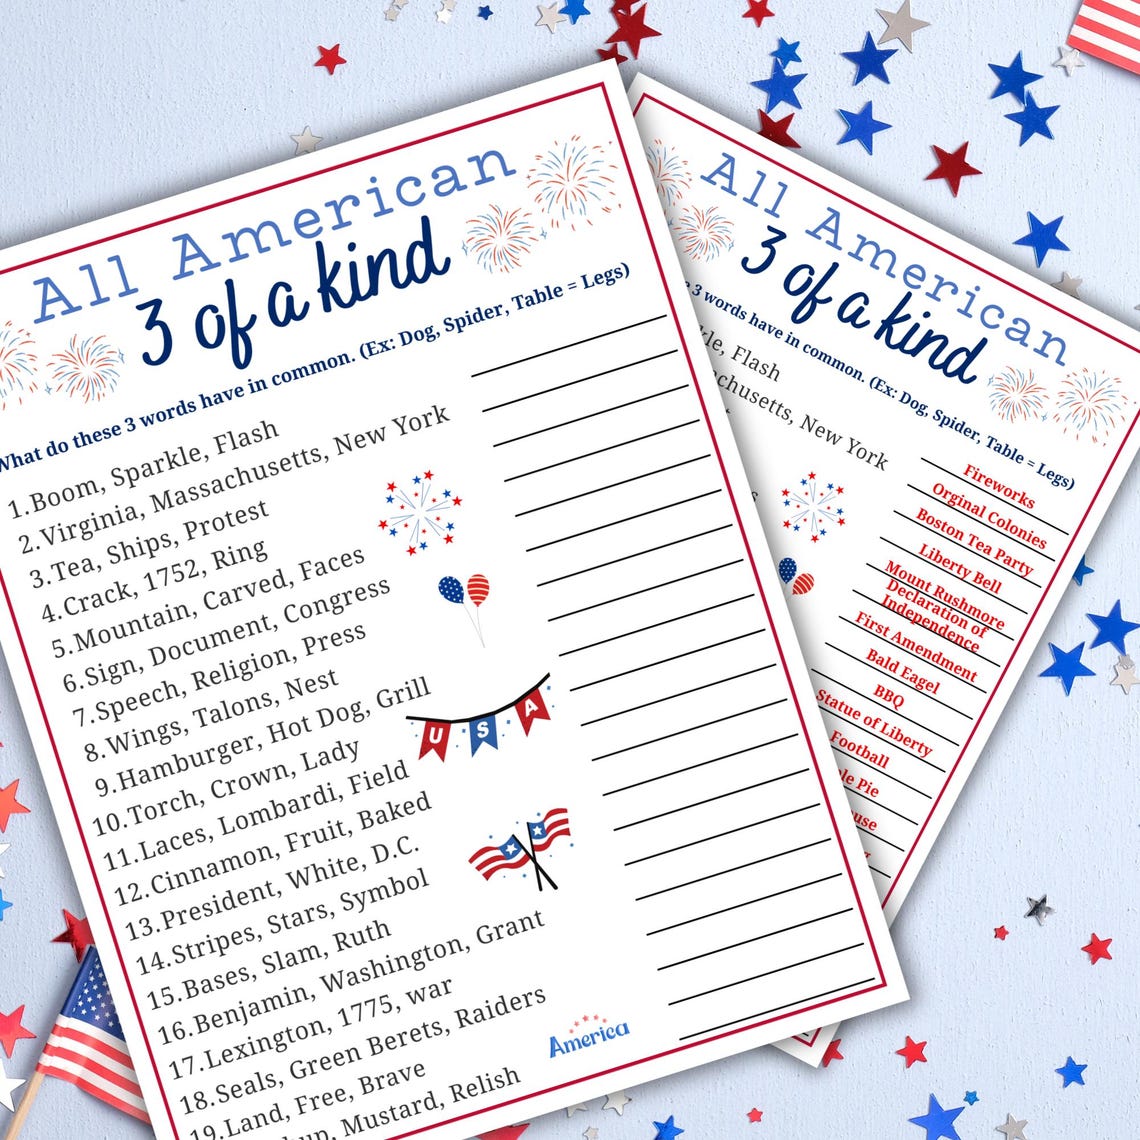 All American
3 of a kind
What do these 3 words have in common. (Ex: Dog, Spider, Table = Legs)
1.Boom, Sparkle, Flash
2.Virginia, Massachusetts, New York
3.Tea, Ships, Protest
4.Crack, 1752, Ring
5.Mountain, Carved, Faces
6.Sign, Document, Congress
7.Speech, Religion, Press
8.Wings, Talons, Nest
9.Hamburger, Hot Dog, Grill
10.Torch, Crown, Lady
11.Laces, Lombardi, Field
12.Cinnamon, Fruit, Baked
13.President, White, D.C.
14.Stripes, Stars, Symbol
15.Bases, Slam, Ruth
16.Benjamin, Washington, Grant
17.Lexington, 1775, war
18.Seals, Green Berets, Raiders
19.Land, Free, Brave
Mustard, Relish
USA
America
All American
3 of a kind
3 words have in common. (Ex: Dog, Spider, Table = Legs)
Flash
New York
Fireworks
Orginal Colonies
Boston Tea Party
Liberty Bell
Mount Rushmore
Declaration of
Independence
First Amendment
Bald Eagel
BBQ
Statue of Liberty
Football
Pie